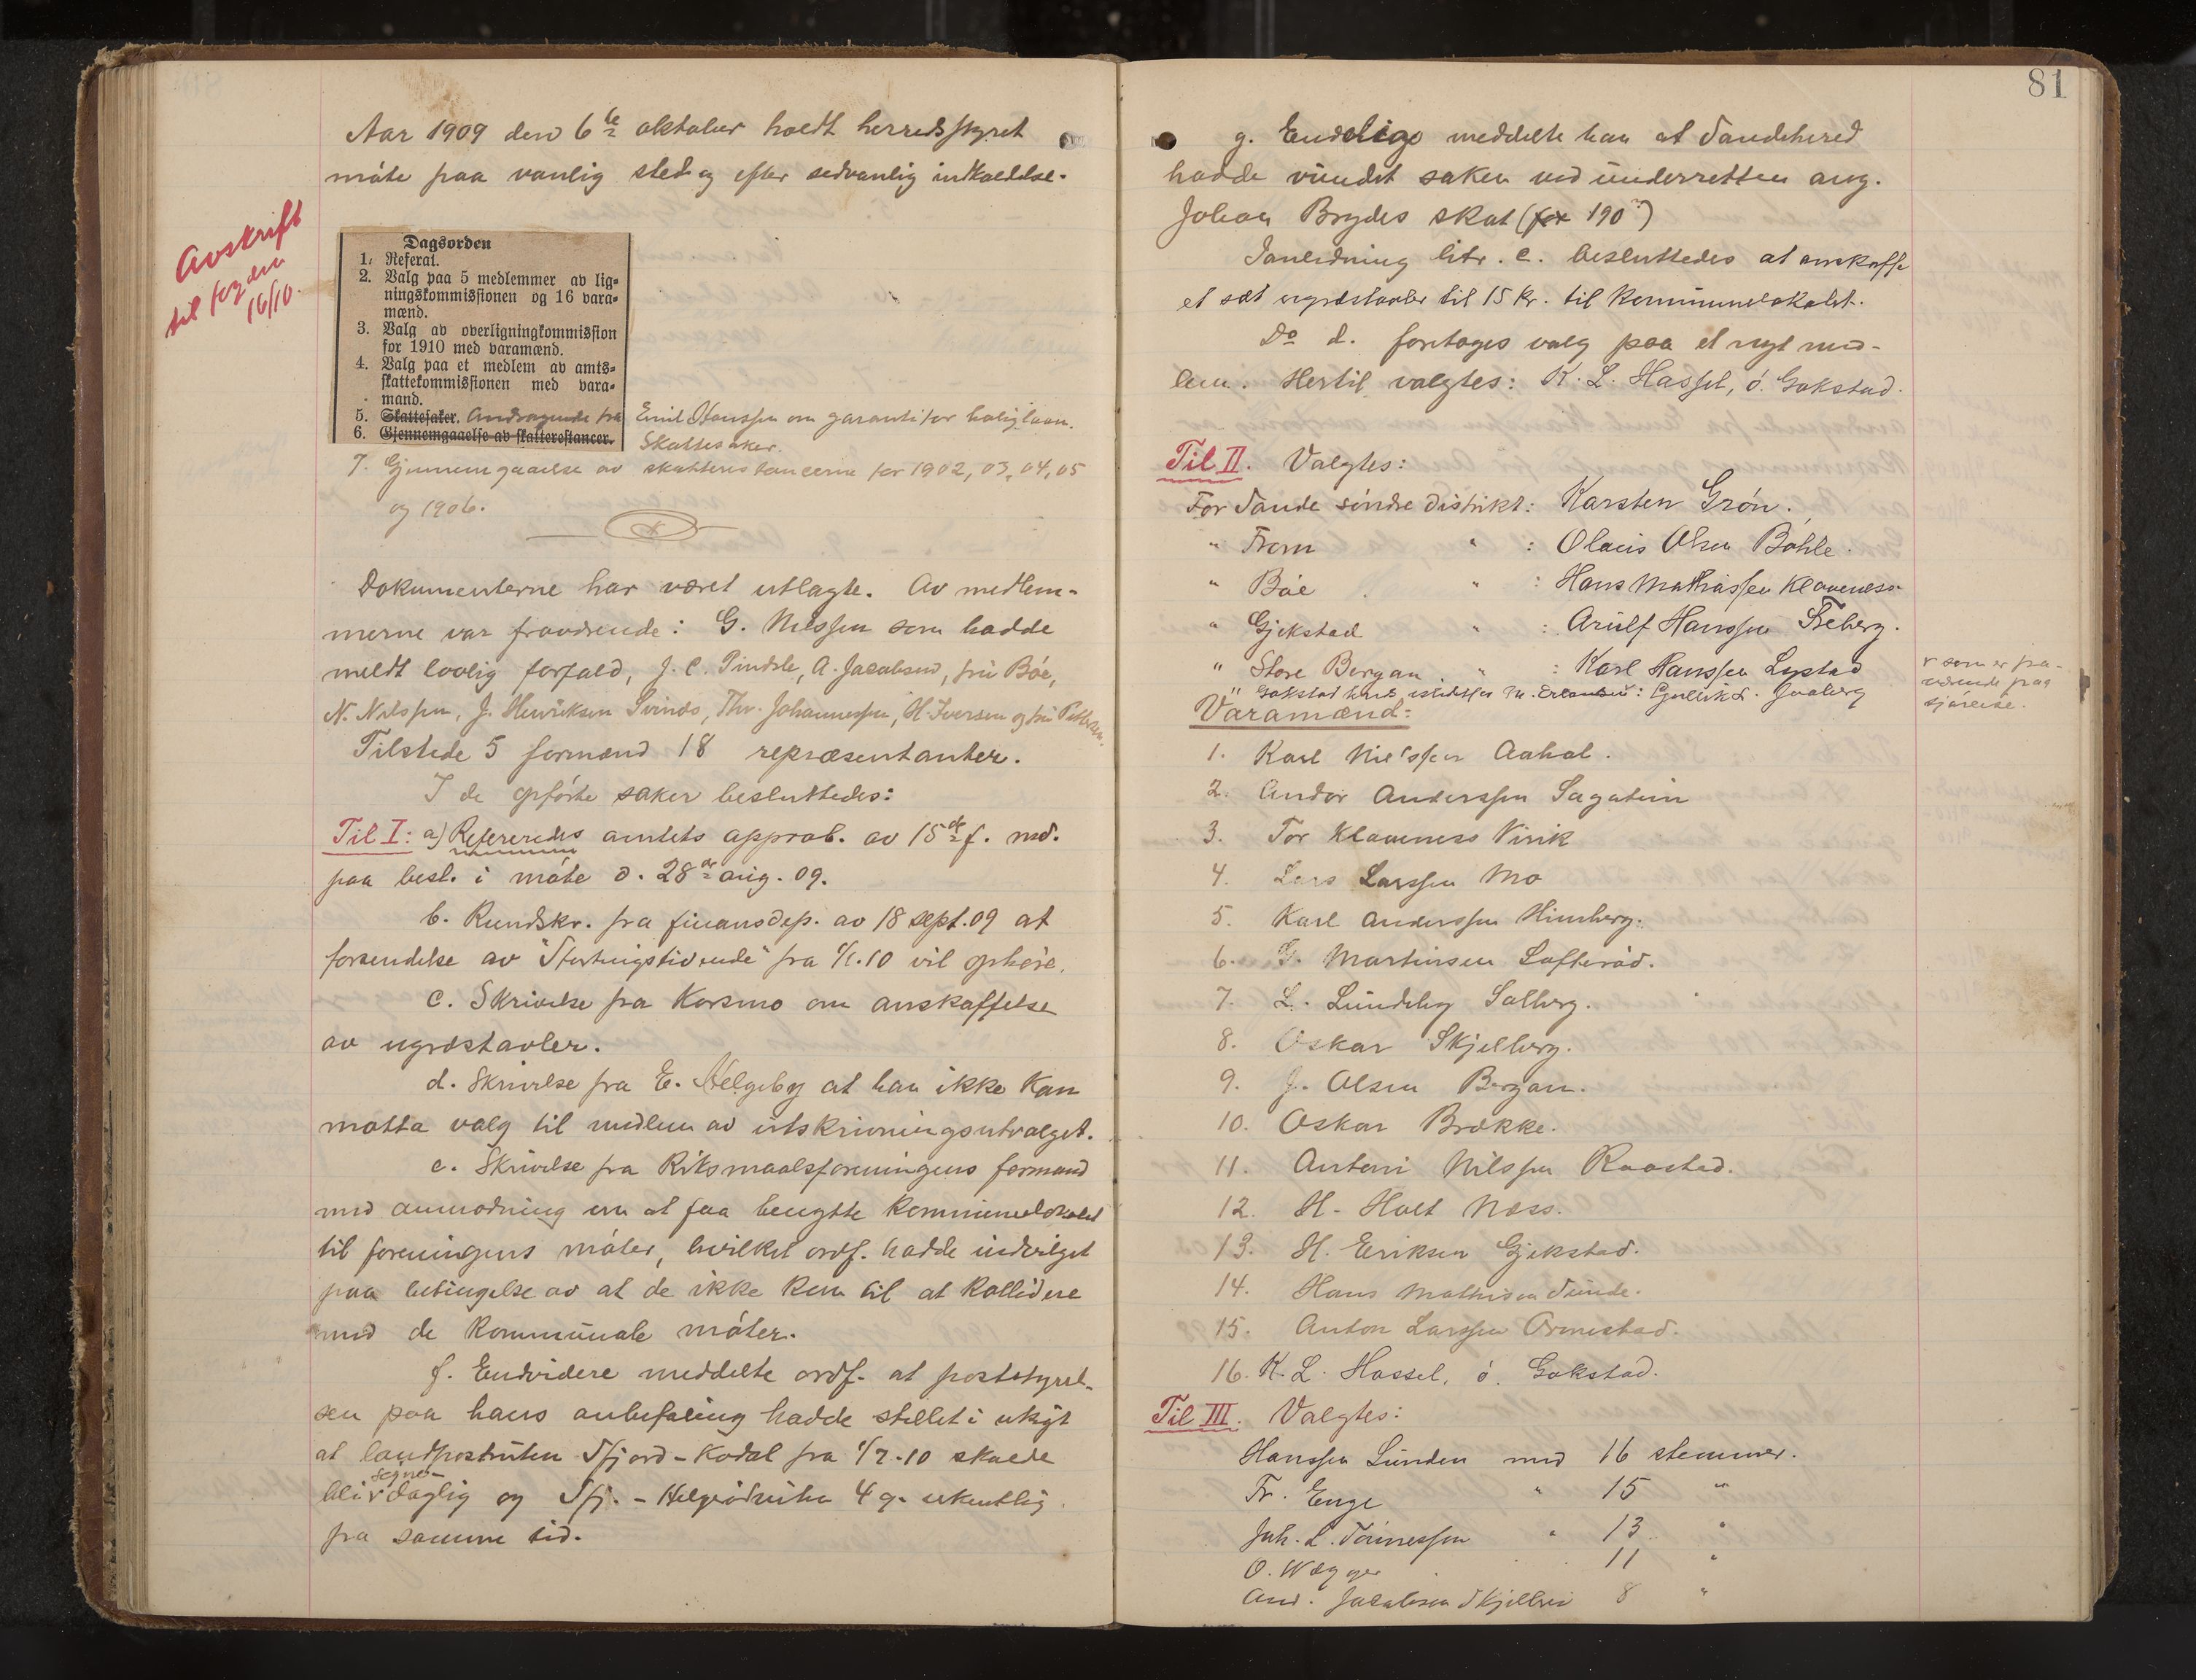 Aar 1909 den 6te oktober holdt herredsstyret
møte paa vanlig sted og efter sedvanlig indkaldelse.
Avskrift
til fogden
16/10.
Dagsorden
1. Referat.
2. Valg paa 5 medlemmer av lig-
ningskommissionen og 16 vara-
mænd.
3. Valg av overligningkommission
for 1910 med varamænd.
4. Valg paa et medlem av amts-
skattekommissionen med vara-
mand.
5. Skattesaker. Andragende fra Emil Hanssen om garanti for boliglaan.
6. Gjennemgaaelse av skatterestancer. Skattesaker.
7. Gjennemgaaelse av skatterestancerne for 1902, 03, 04, 05
og 1906.
Dokumenterne har været utlagte. Av medlem-
merne var fraværende: G. Nilssen som hadde
meldt lovlig forfald, J. C. Pindsle, A. Jacobsen, fru Bøe,
N. Nilssen, J. Henriksen Svinøs, Thv. Johannessen, H. Iversen og fru
Tilstede 5 formænd 18 repræsentanter.
I de opførte saker besluttedes:
Til I: a) Refereredes amtets approb. av 15de f. md.
paa besl. i møte d. 28de aug. 09.
b. Rundskr. fra finansdep. av 18 sept. 09 at
forsendelse av "Stortingstidende" fra 1/1.10 vil ophøre.
c. Skrivelse fra Korsmo om anskaffelse
av ugræstavler.
d. Skrivelse fra E. Helgeby at han ikke kan
motta valg til medlem av utskrivningsutvalget.
e. Skrivelse fra Riksmaalsforeningens formand
med anmodning om at faa benytte kommunelokalet
til foreningens møter, hvilket ordf. hadde indvilget
paa betingelse av at de ikke kom til at kollidere
med de kommunale møter.
f. Endvidere meddelte ordf. at poststyrel-
sen paa hans anbefaling hadde stillet i utsigt
at landpostruten Sfjord - Kodal fra 1/7.10 skulde
søgne-
bli daglig og Sfj. - Helgerødruten 4 g. ukentlig
fra samme tid.
81
g. Endelig meddelte han at Sandeherred
hadde vundet saken ved underretten ang.
Johan Brydes skat (for 190?)
I anledning litr. c. besluttedes at anskaffe
et sæt ugræstavler til 15 kr. til kommunelokalet.
Do d. foretoges valg paa et nyt med-
lem. Hertil valgtes: K. L. Hassel, ø. Gokstad.
Til II. Valgtes:
For Sande søndre distrikt: Karsten Grøn.
" Fram " : Olaus Olsen Bøhle.
" Bøe " : Hans Mathiassen Klaveness
" Gjekstad " : Arulf Hanssen Freberg.
" Store Bergan " : Karl Hanssen Lystad
" Gokstad : Gullik L. Gaaberg
v som er fra-
værende paa
sjøreise.
Varamænd:
1. Karl Nielssen Aakol.
2. Andor Anderssen Sagatun
3. Tor Klavness Virik
4. Lars Larssen Mo
5. Karl Anderssen Himberg.
6. G. Martinsen Lofterød.
7. L. Lundeby Solberg.
8. Oskar Skjelberg.
9. J. Olsen Bergan.
10. Oskar Brække.
11. Antoni Nilssen Raastad.
12. H. Holt Næss.
13. H. Eriksen Gjekstad.
14. Hans Mathisen Sunde.
15. Anton Larssen Ormestad.
16. K. L. Hassel, ø. Gokstad.
Til III. Valgtes:
Hanssen Lunden med 16 stemmer.
Fr. Enge " 15 "
Joh. L. Tønnessen " 13 "
O. Wægger 11 "
And. Jacobsen Skjellvi 8 "